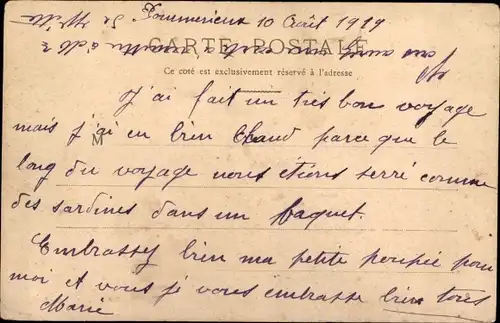 Pommerieux 10 Août 1919
CARTE POSTALE
Ce coté est exclusivement réservé à l'adresse
J'ai fait un très bon voyage
M
mais j'ai eu bien chaud parce que le
long du voyage nous étions serré comme
des sardines dans un baquet.
Embrassez bien ma petite poupée pour
moi et vous je vous embrasse bien tous
Marie